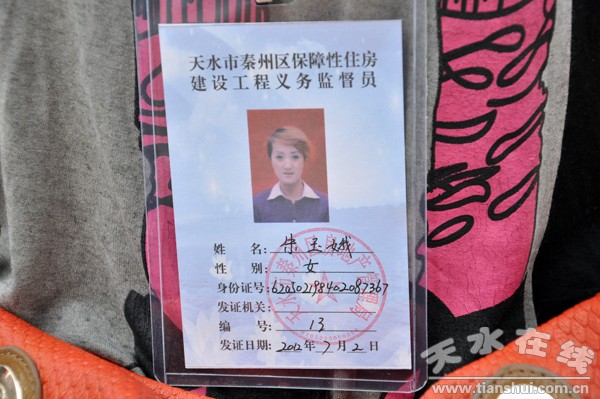 天水市秦州区保障性住房
建设工程义务监督员
姓 名: 玉娥
性 别: 女
身份证号:
发证机关:
编 号: 13
发证日期: 2012年7月2日
天水市秦州区房地产管理局
天水在线
www.tianshui.com.cn